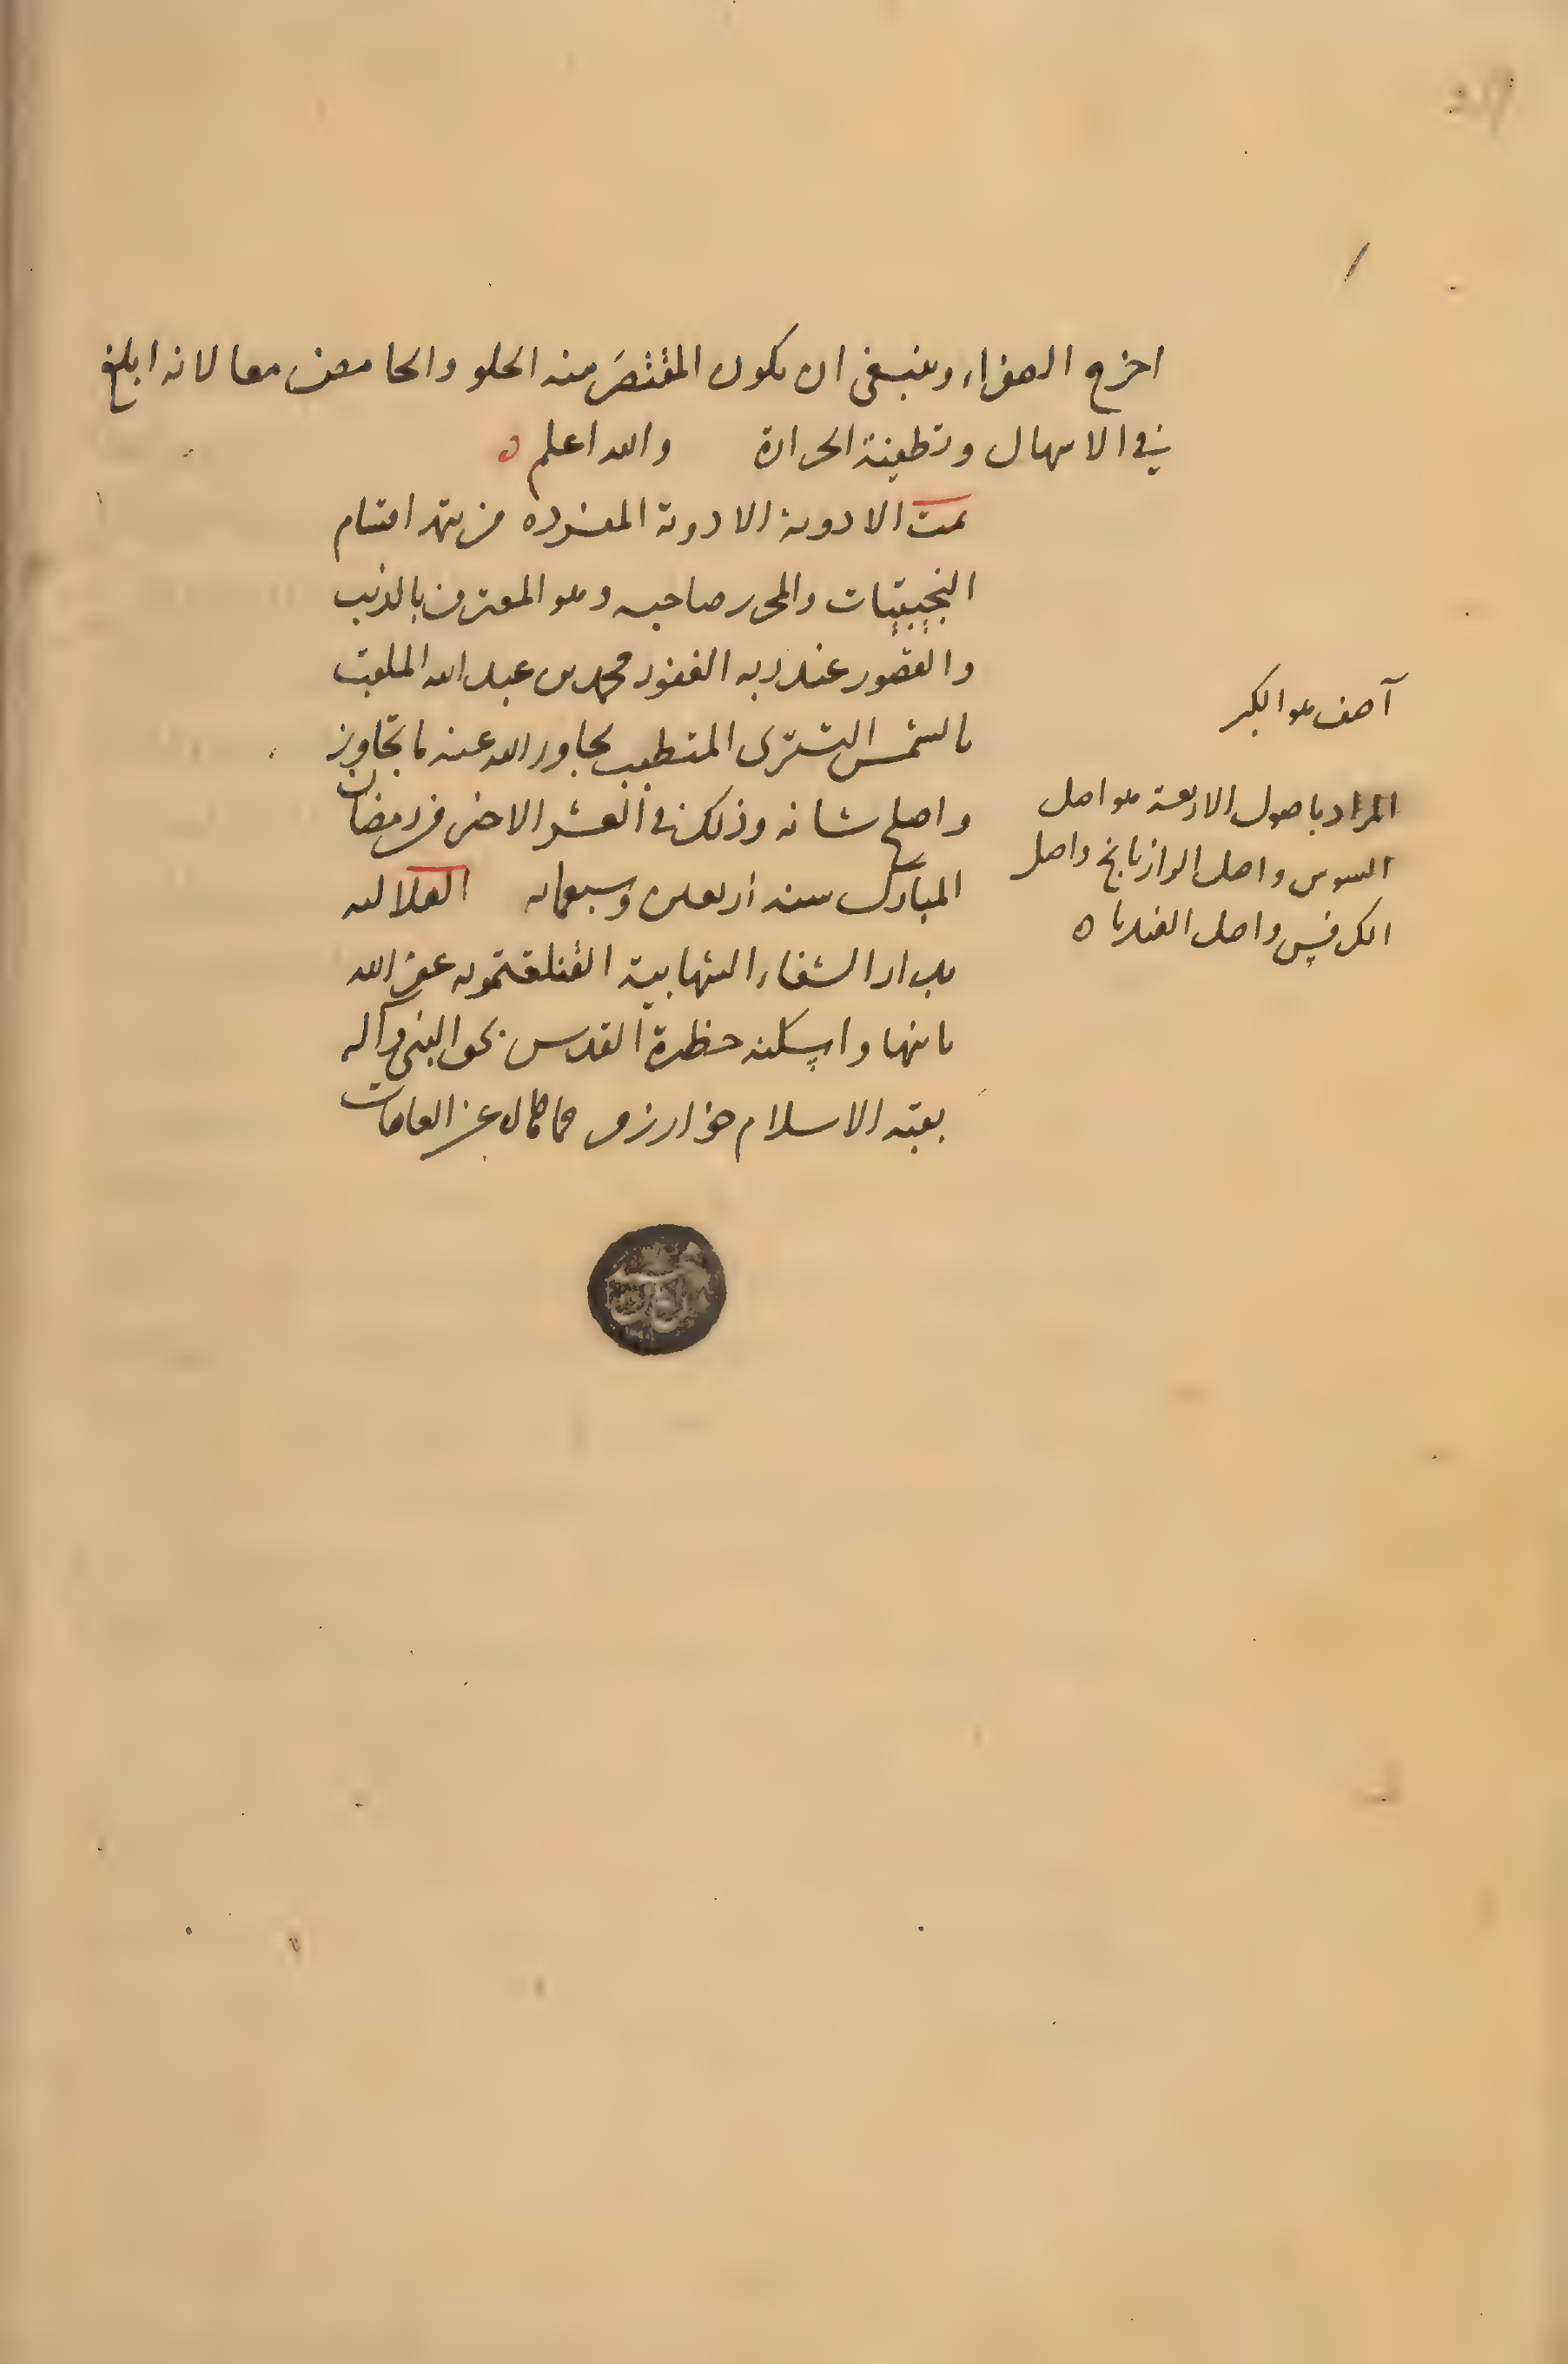 اخرج الصفراء وينبغي ان يكون المعتصر منه الحلو والحامض معا لانه ابلغ
في الاسهال وتطفية الحرارة والله اعلم ه
تمت الادوية الادوية المفردة من اقسام
النجيبيات والمحرر صاحبه وهو المعترف بالذنب
والقصور عند ربه الغفور محمد بن عبد الله الملقب
بالشمس التستري المتطبب تجاوز الله عنه ما تجاوز
واصلح شانه وذلك في العشر الاخر من رمضان
المبارك سنه اربعين وسبعمايه
بدار الشفاء الشهابية القتلقتمورية عفر الله
بانيها واسكنه حظيرة القدس بحق النبي وآله
بقبة الاسلام خوارزم حماها الله عن العاهات
آصف هو الكبر
المراد باصول الاربعة هو اصل
السوس واصل الرازيانج واصل
الكرفس واصل الهندبا ه